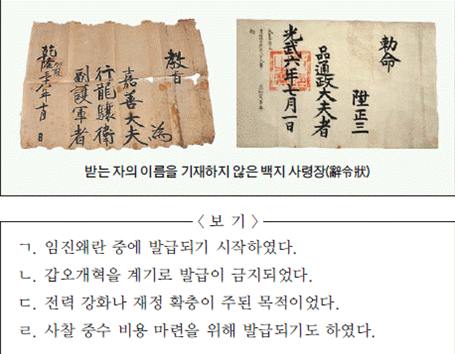 敎旨
為
嘉善大夫
行龍驤衛
副護軍者
乾隆 年十月 日
勅命
陞正三
品通政大夫者
光武六年七月一日
받는 자의 이름을 기재하지 않은 백지 사령장(辭令狀)
〈보 기〉
ㄱ. 임진왜란 중에 발급되기 시작하였다.
ㄴ. 갑오개혁을 계기로 발급이 금지되었다.
ㄷ. 전력 강화나 재정 확충이 주된 목적이었다.
ㄹ. 사찰 중수 비용 마련을 위해 발급되기도 하였다.